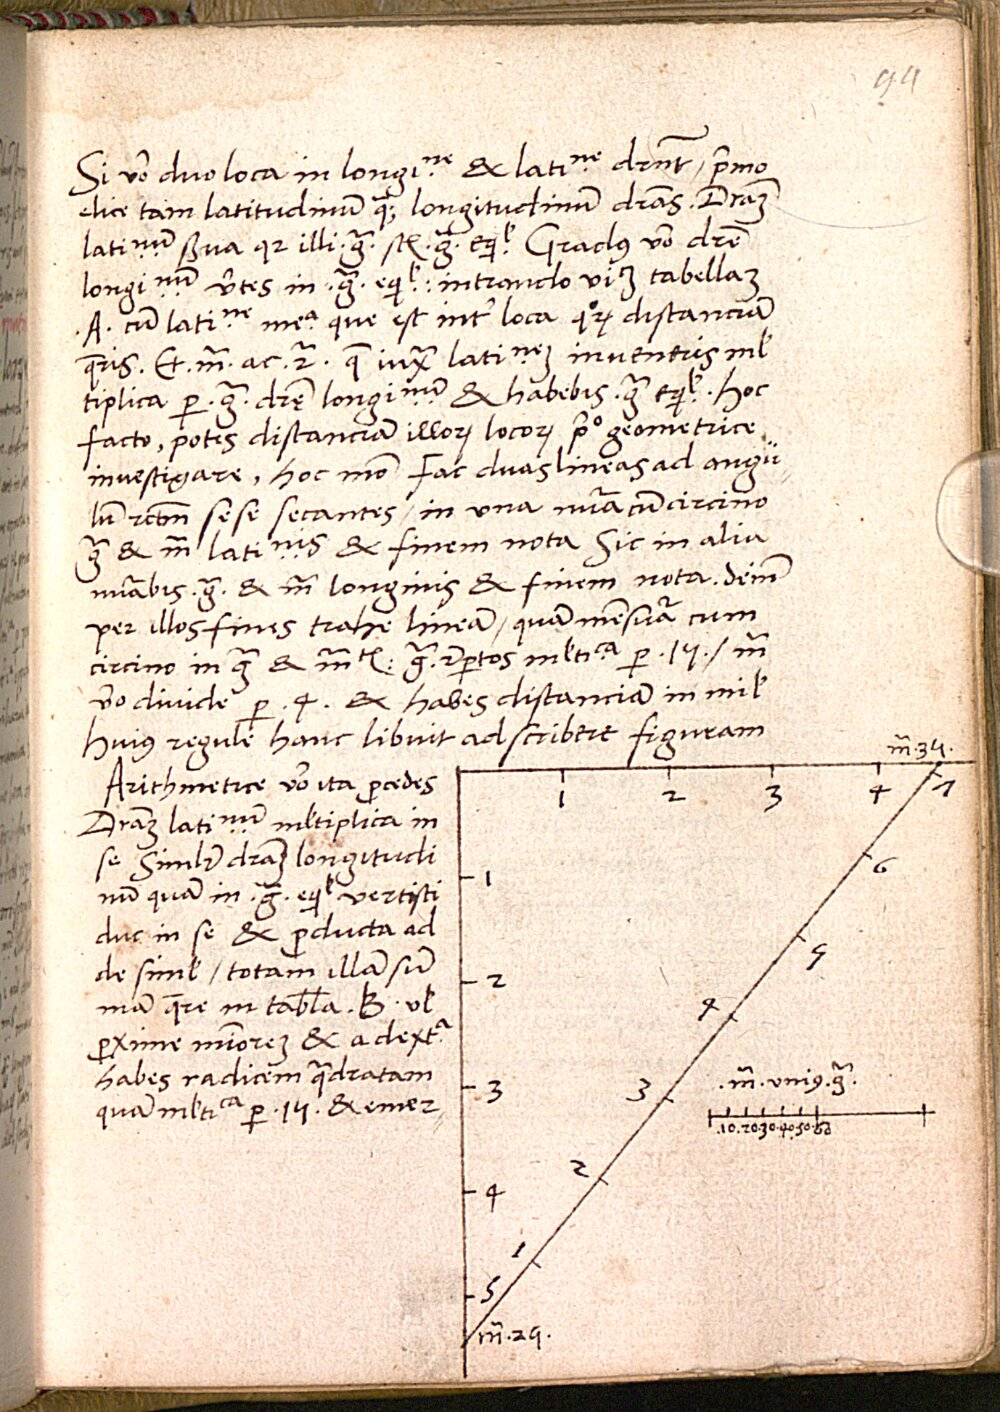 94
Si vo duo loca in longi.ne & lati.ne drnt / pmo
elice tam latitudinu q longitudinu dras. Dram
lati.nu sua qr illi .g. sz .g. eql Gradus vo dre
longi.nu vtes in .g. eql: intrando viz tabellam
.A. cu lati.ne mea que est int loca quor distancia
qris. Et .m. ac .2. q iuxta lati.nem inveneris ml
tiplica p .g. dre longi.nu & habebis .g. eql. Hoc
facto, potes distancia illor locor po geometrice
investigare, hoc mo Fac duas lineas ad angu
lu rctm sese secantes / in una nua cu circino
g & m lati.nis & finem nota Sic in alia
nuabis .g. & m longinis & finem nota. dein
per illos fines trahe linea / qua mensura cum
circino in g & m: g. rptos mlti.ca p .15. / m
vo divide p .4. & habes distancia in mil
Huius regule hanc libuit adscribere figuram
Arithmetice vo ita pcedes
Dram lati.nu mltiplica in
se Similr dram longitudi
nu qua in .g. eql vertisti
duc in se & pducta ad
de siml / totam illa sum
ma qre in tabla .B. vl
pxime miore & a dextra
habes radicem qdratam
qua mlti.ca p .15. & emer
m.34.
1 2 3 4
1
2
3
4
5
7
6
5
4
3
2
1
.m. unius .g.
.10.20.30.40.50.60
m.29.